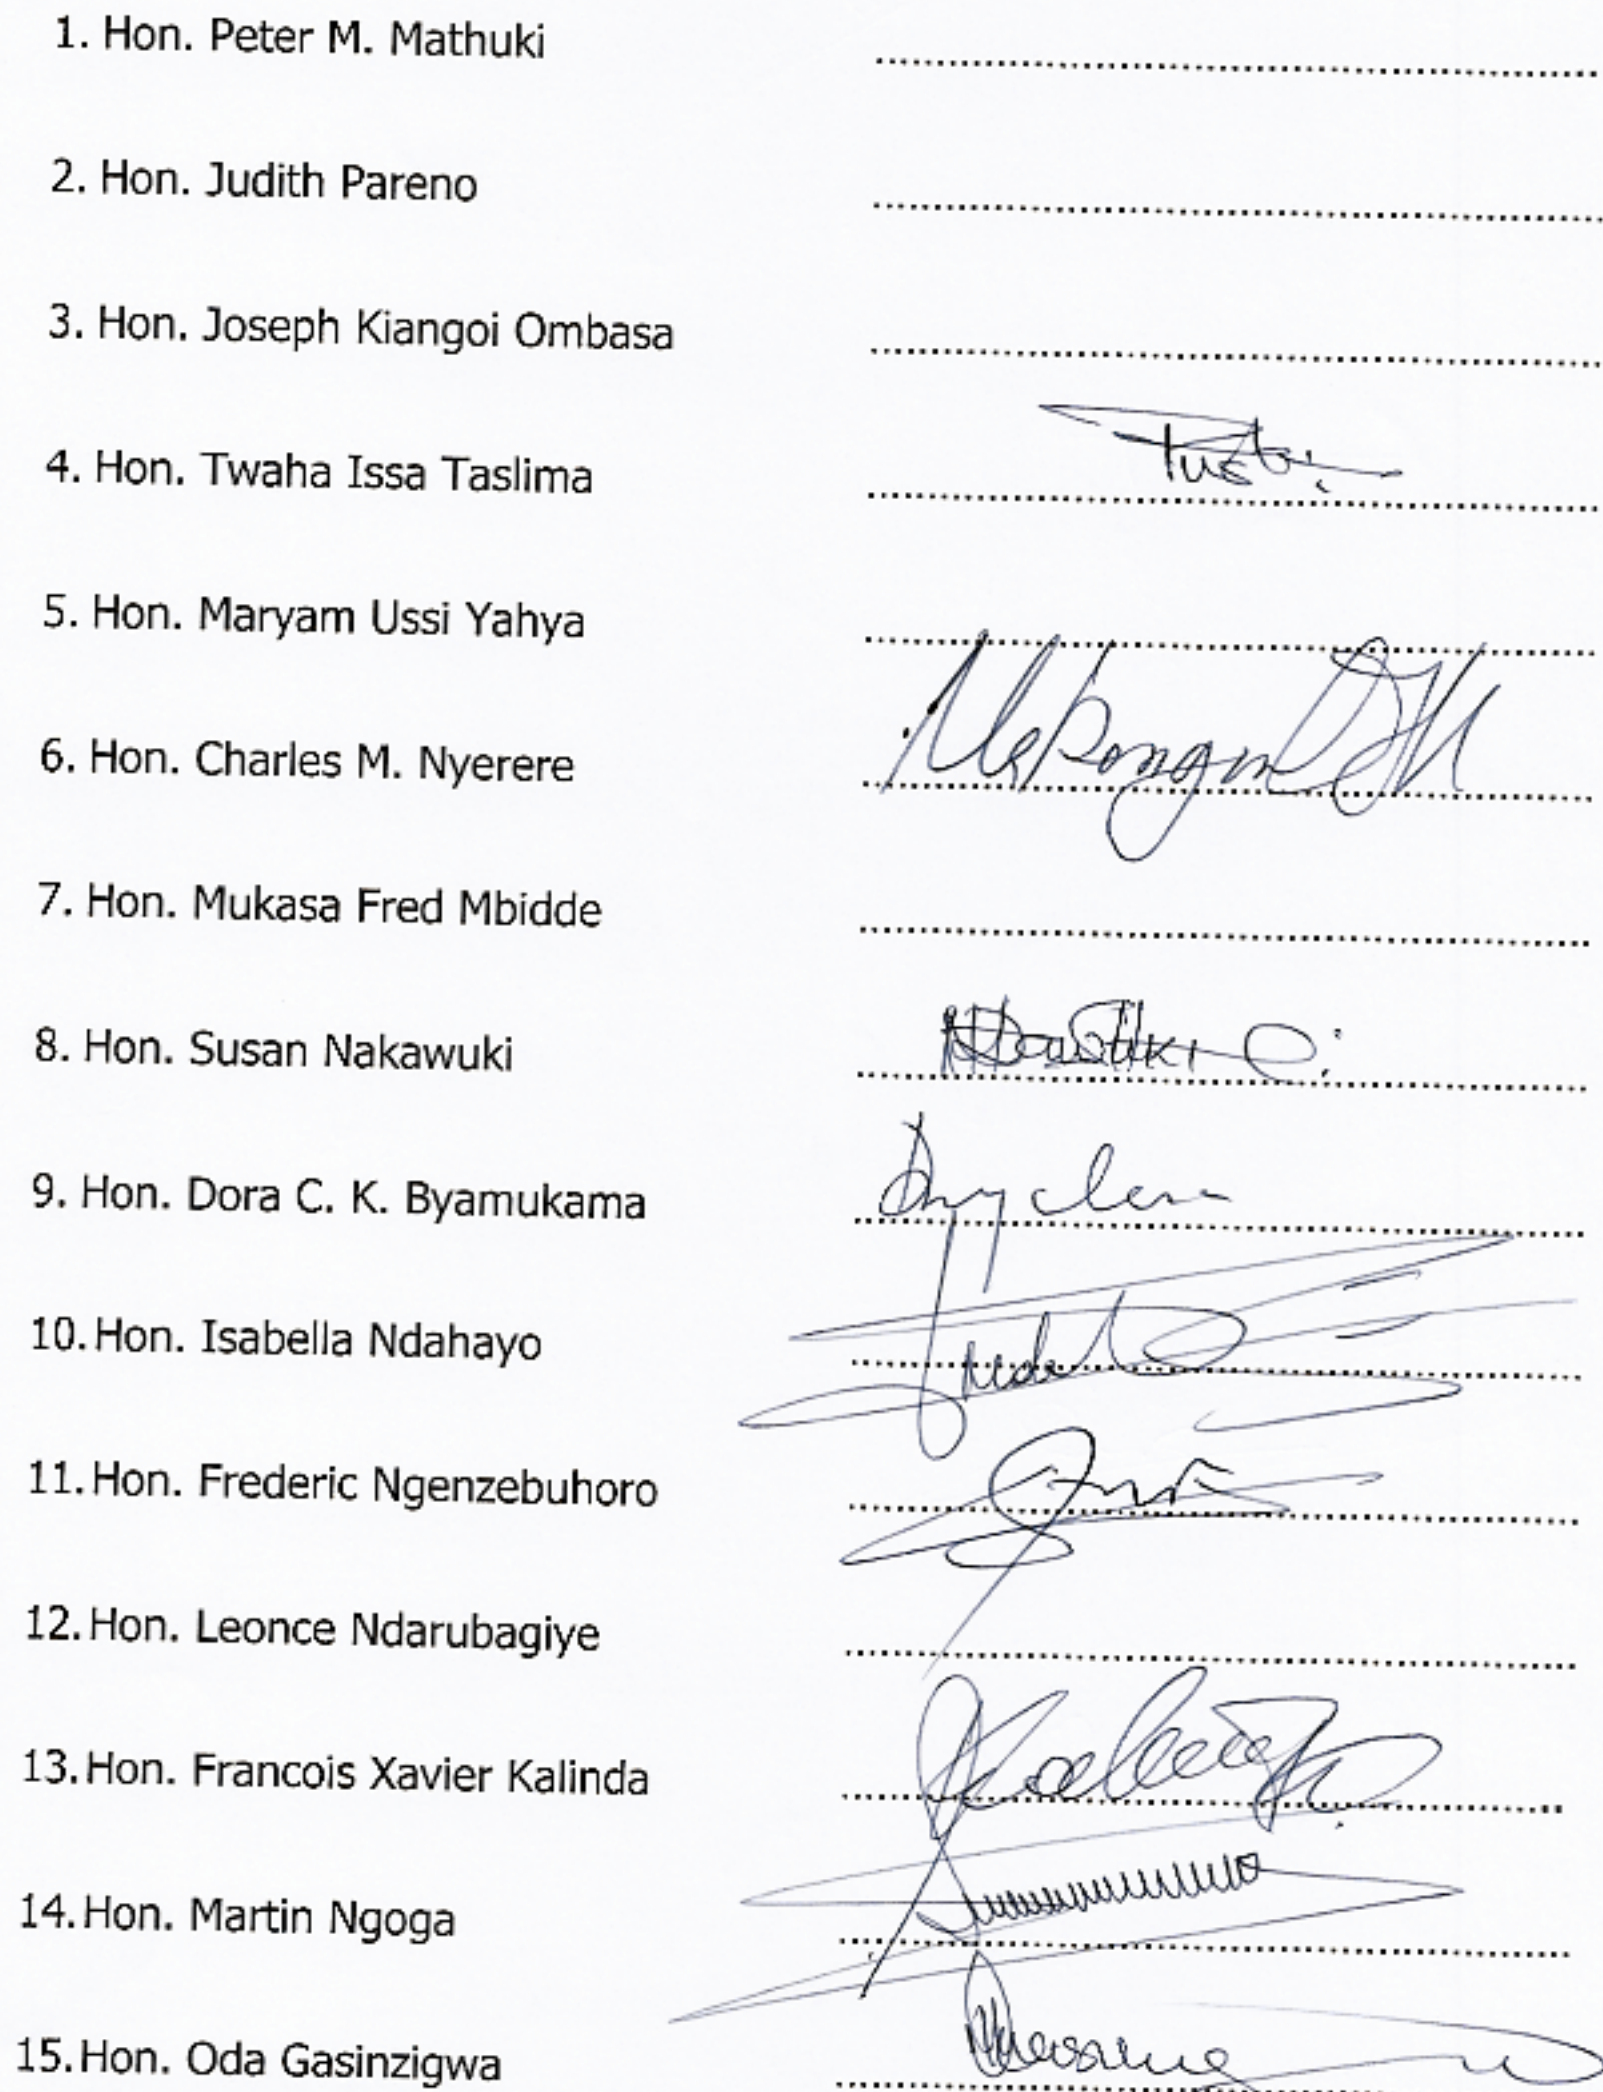 1. Hon. Peter M. Mathuki
2. Hon. Judith Pareno
3. Hon. Joseph Kiangoi Ombasa
4. Hon. Twaha Issa Taslima
5. Hon. Maryam Ussi Yahya
6. Hon. Charles M. Nyerere
7. Hon. Mukasa Fred Mbidde
8. Hon. Susan Nakawuki
9. Hon. Dora C. K. Byamukama
10. Hon. Isabella Ndahayo
11. Hon. Frederic Ngenzebuhoro
12. Hon. Leonce Ndarubagiye
13. Hon. Francois Xavier Kalinda
14. Hon. Martin Ngoga
15. Hon. Oda Gasinzigwa